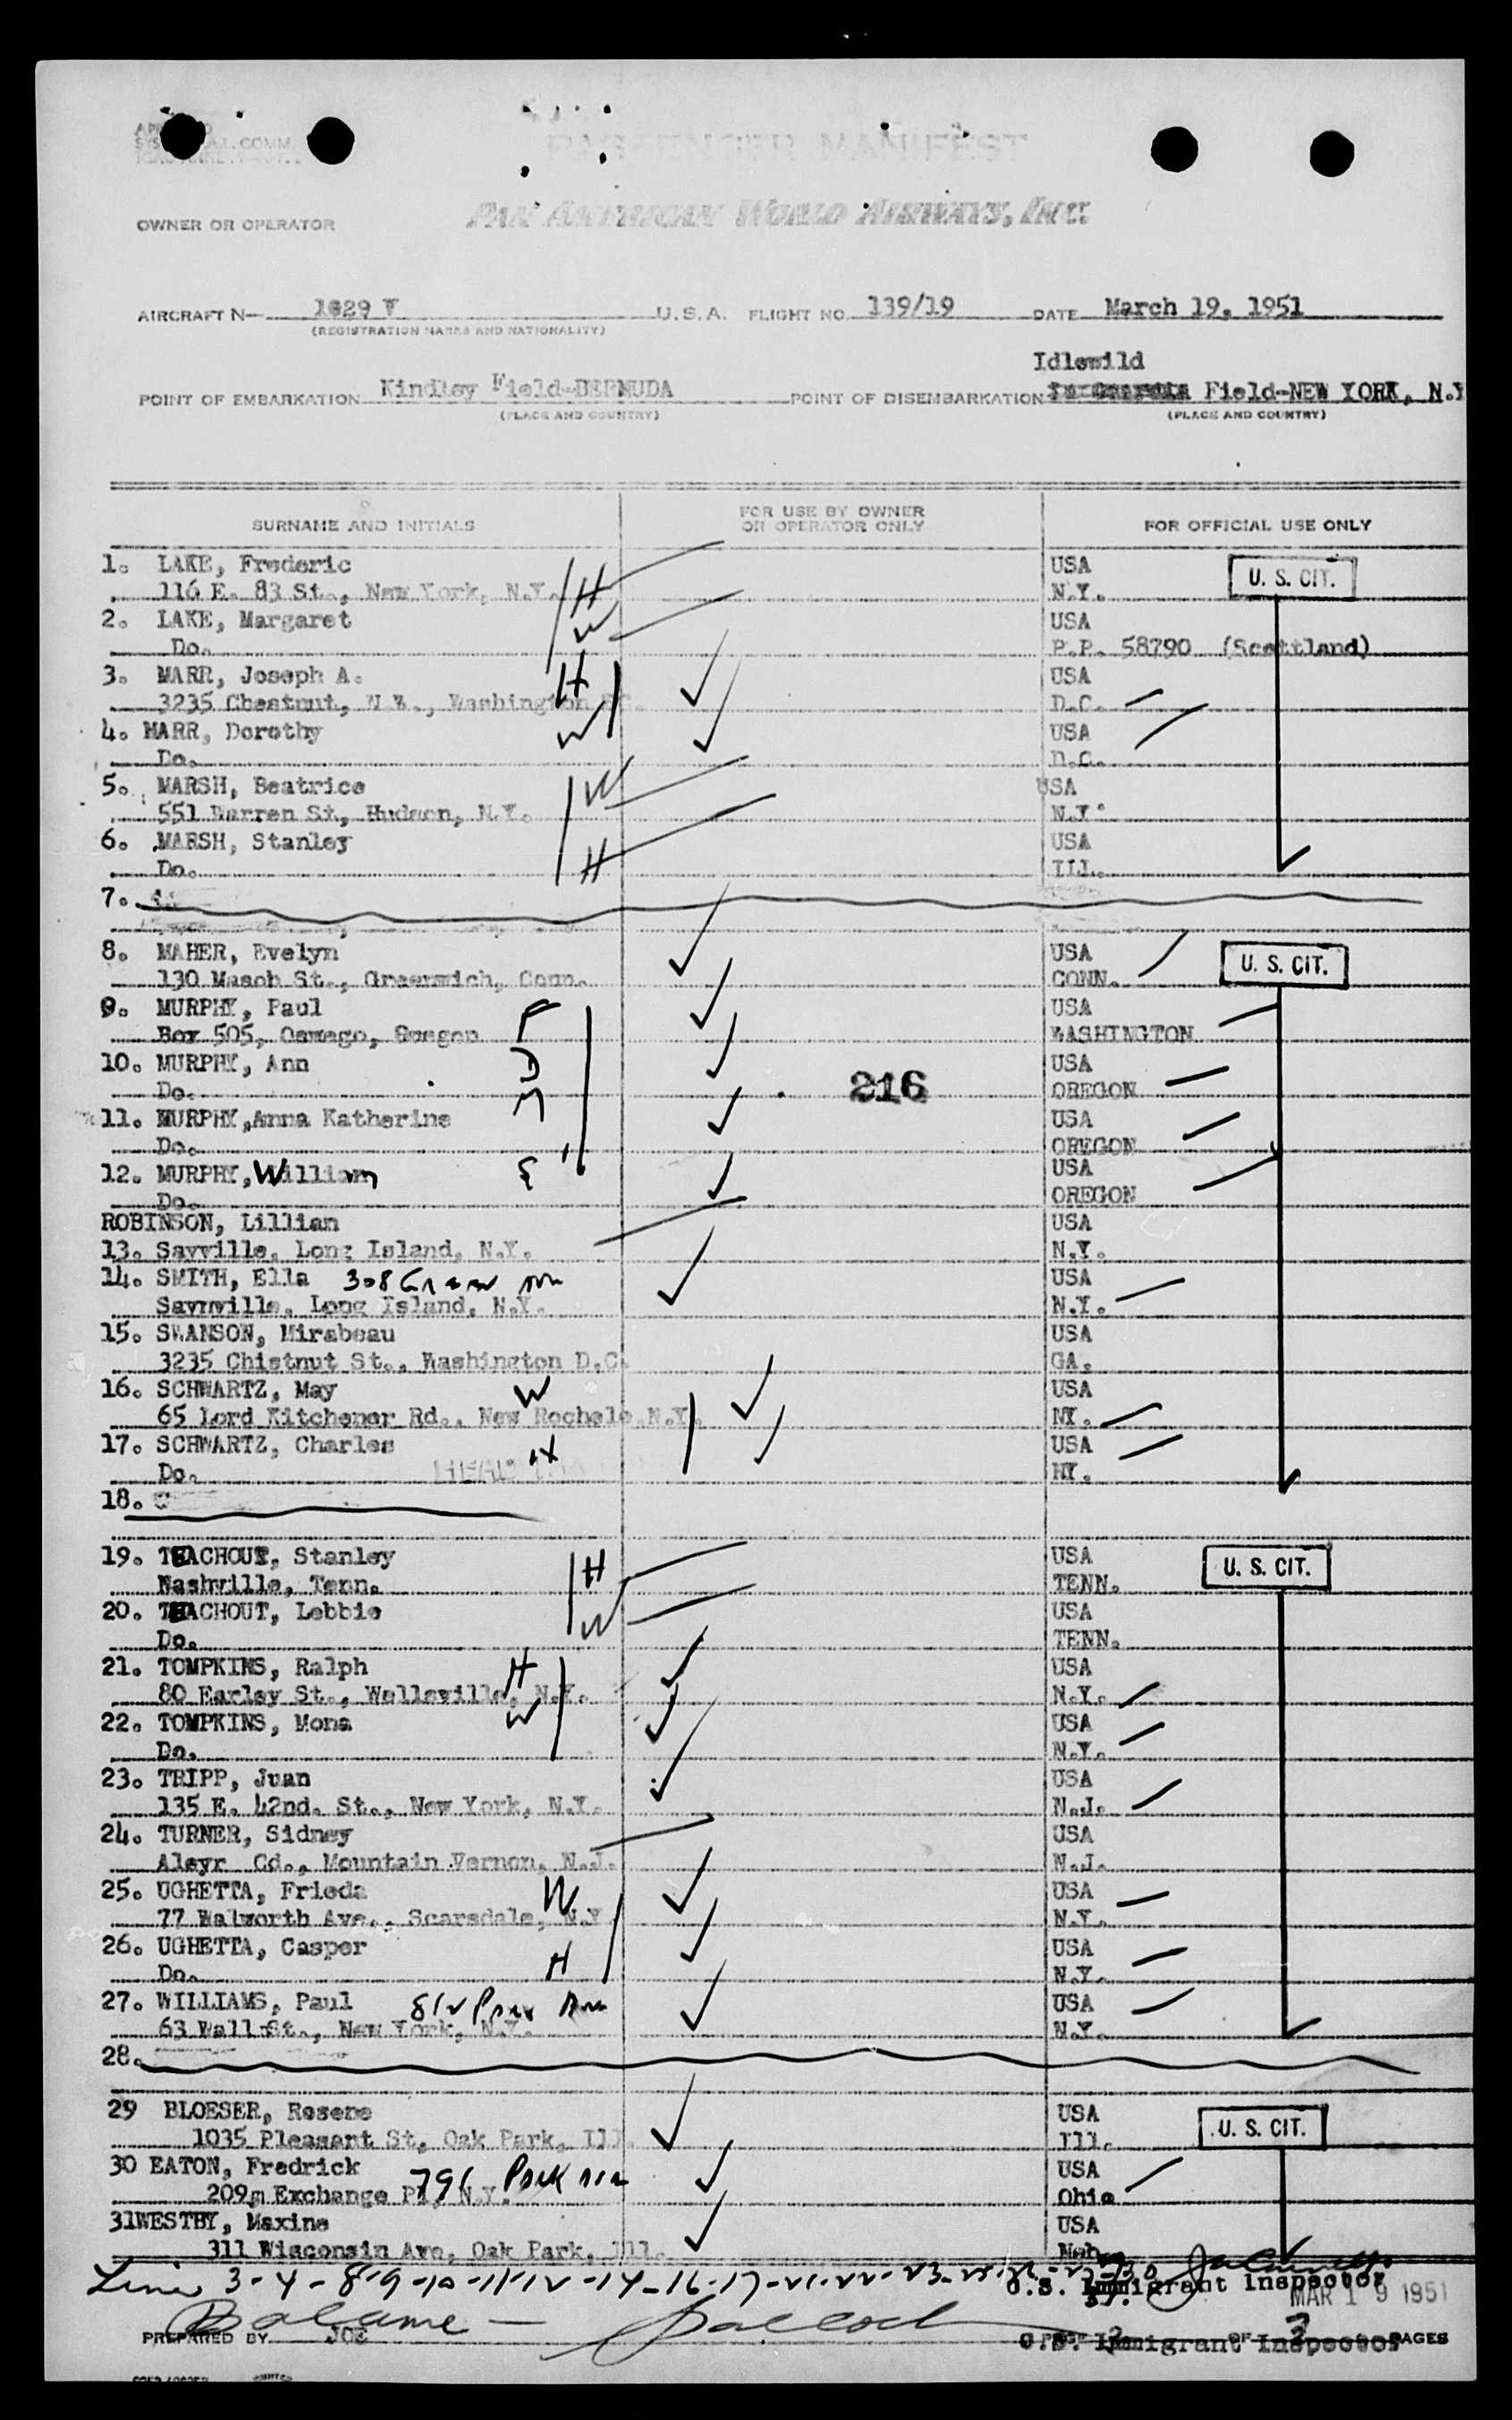 PASSENGER MANIFEST
OWNER OR OPERATOR PAN AMERICAN WORLD AIRWAYS, INC.
AIRCRAFT N— 1029 V U.S.A. FLIGHT NO. 139/19 DATE March 19, 1951
(REGISTRATION MARKS AND NATIONALITY)
Idlewild
POINT OF EMBARKATION Kindley Field-BERMUDA POINT OF DISEMBARKATION Field-NEW YORK, N.Y
(PLACE AND COUNTRY) (PLACE AND COUNTRY)
SURNAME AND INITIALS FOR USE BY OWNER OR OPERATOR ONLY FOR OFFICIAL USE ONLY
1. LAKE, Frederic USA U. S. CIT.
116 E. 83 St., New York, N.Y. H N.Y.
2. LAKE, Margaret W USA
Do. P.P. 58790 (Scottland)
3. MARR, Joseph A. H USA
3235 Chestnut, N.W., Washington DC. D.C.
4. MARR, Dorothy W USA
Do. D.C.
5. MARSH, Beatrice W USA
551 Warren St, Hudson, N.Y. N.Y.
6. MARSH, Stanley USA
Do. H ILL.
7.
8. MAHER, Evelyn USA U. S. CIT.
130 Mason St., Greenwich, Conn. CONN.
9. MURPHY, Paul F USA
Box 505, Oswego, Oregon WASHINGTON
10. MURPHY, Ann D USA
Do. 216 OREGON
11. MURPHY,Anna Katherine M USA
Do. OREGON
12. MURPHY, William S USA
Do. OREGON
ROBINSON, Lillian USA
13. Sayville, Long Island, N.Y. N.Y.
14. SMITH, Ella 308 Green Ave USA
Sayville, Long Island, N.Y. N.Y.
15. SWANSON, Mirabeau USA
3235 Chistnut St., Washington D.C. GA.
16. SCHWARTZ, May W USA
65 Lord Kitchener Rd., New Rochele N.Y. NY.
17. SCHWARTZ, Charles H USA
Do. NY.
18.
19. TEACHOUT, Stanley H USA U. S. CIT.
Nashville, Tenn. TENN.
20. TEACHOUT, Lebbie W USA
Do. TENN.
21. TOMPKINS, Ralph H USA
80 Earley St., Wellsville, N.Y. N.Y.
22. TOMPKINS, Mona W USA
Do. N.Y.
23. TRIPP, Juan USA
135 E. 42nd. St., New York, N.Y. N.J.
24. TURNER, Sidney USA
Aleyr Cd., Mountain Vernon, N.J. N.J.
25. UGHETTA, Frieda W USA
77 Walworth Ave., Scarsdale, N.Y. N.Y.
26. UGHETTA, Casper USA
Do. H N.Y.
27. WILLIAMS, Paul 812 Park Ave USA
63 Wall St., New York, N.Y. N.Y.
28.
29 BLOESER, Rosene USA U. S. CIT.
1035 Pleasant St, Oak Park, Ill. Ill.
30 EATON, Fredrick 791 Park Ave USA
209m Exchange Pl, N.Y. Ohio
31WESTBY, Maxine USA
311 Wisconsin Ave, Oak Park, Ill. Neb.
Line 3-4-8-9-10-11-12-14-16-17-21-22-23-25-26-27-30
U.S. Immigrant Inspector
MAR 19 1951
PREPARED BY JOE
U.S. Immigrant Inspector
PAGE 2 OF 3 PAGES